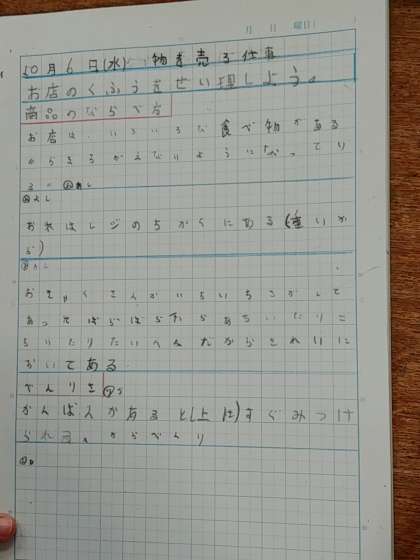 月 日 曜日
10月6日(水) 物を売る仕事
お店のくふうをせい理しよう。
商品のならべ方
お店は、いろいろな食べ物がある
からきろがえないようになってい
る。
おれはレジのちかくにある(重いか
ら)
おきゃくさんがいちいちさがして
あってばらばらだったらあちいたりこ
ちいたりたいへんだからきれいに
おいてある。
べんりさ
かんばんがあると(上に)すぐみつけ
られる、からべんり